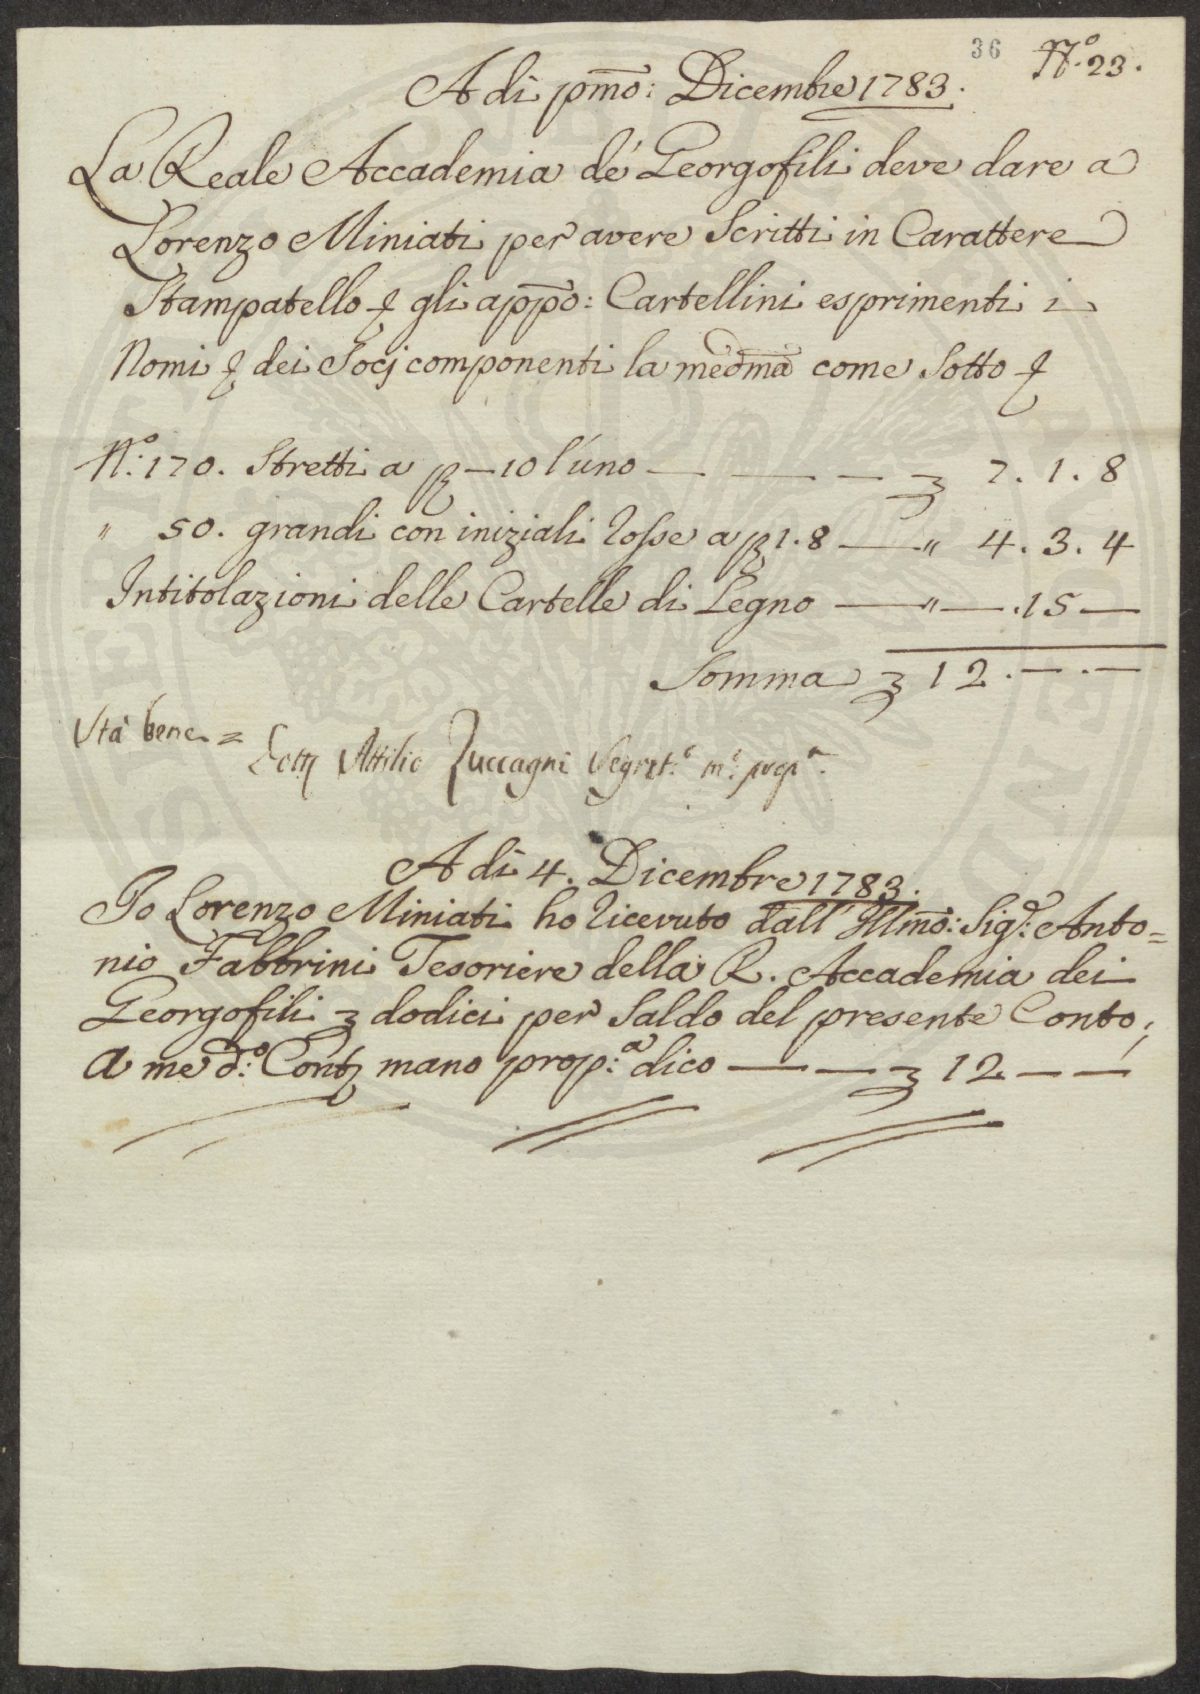 36 Nº. 23.
A di pmo: Dicembre 1783.
La Reale Accademia de' Georgofili deve dare a
Lorenzo Miniati per avere Scritti in Carattere
Stampatello gli appo: Cartellini esprimenti i
Nomi dei Socj componenti la medma come Sotto
Nº: 170. Stretti a β — 10 l'uno — — — 7. 1. 8
" 50. grandi con iniziali rosse a β 1. 8 — " 4. 3. 4
Intitolazioni delle Cartelle di Legno — " — . 15 —
Somma 12. — . —
Sta bene = Dott Attilio Zuccagni Segret:º mº: propª.
A di 4. Dicembre 1783.
Io Lorenzo Miniati ho ricevuto dall' Illmo: Sigr: Anto=
nio Fabbrini Tesoriere della R. Accademia dei
Georgofili dodici per Saldo del presente Conto,
A me do: Contj mano prop:a dico — — 12 — —